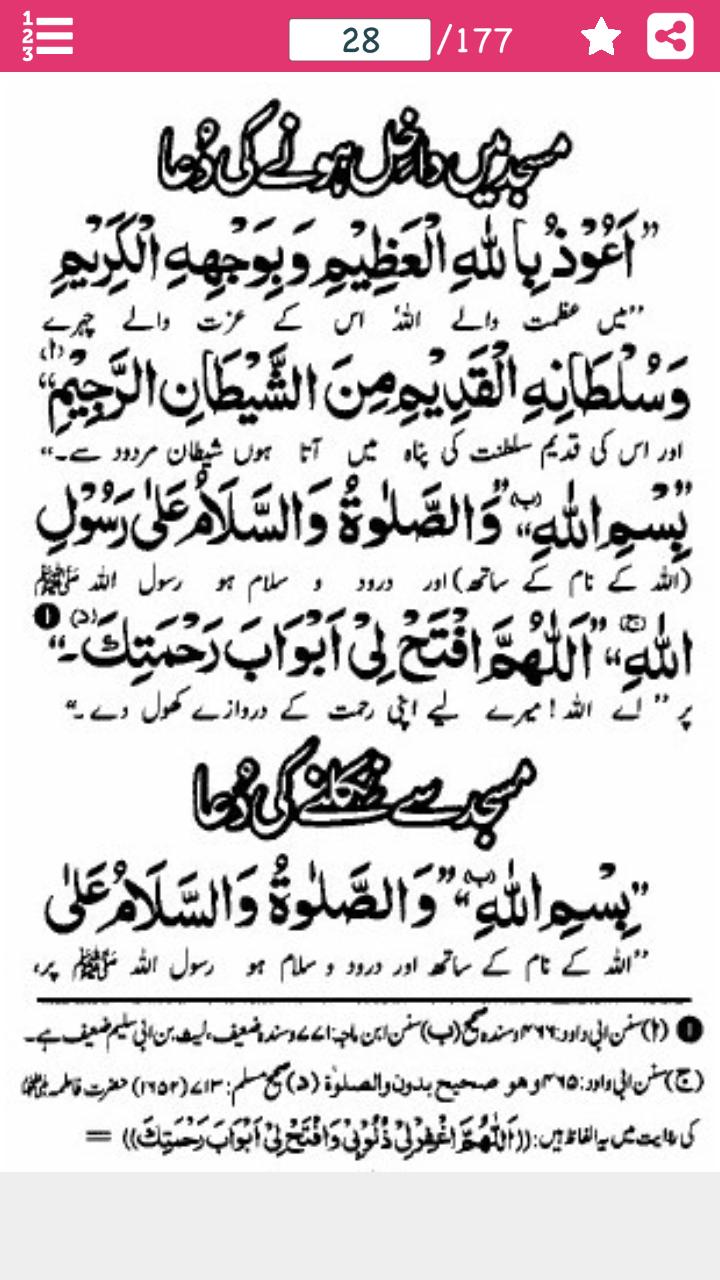 1
2
3
28 /177
مسجد میں داخل ہونے کی دُعا
”اَعُوْذُ بِاللّٰهِ الْعَظِيْمِ وَبِوَجْهِهِ الْكَرِيْمِ
”میں عظمت والے اللہ اس کے عزت والے چہرے
وَسُلْطَانِهِ الْقَدِيْمِ مِنَ الشَّيْطَانِ الرَّجِيْمِ“ (ا)
اور اس کی قدیم سلطنت کی پناہ میں آتا ہوں شیطان مردود سے۔“
”بِسْمِ اللّٰهِ“(ب) ”وَالصَّلٰوةُ وَالسَّلَامُ عَلٰى رَسُوْلِ
(اللہ کے نام کے ساتھ) اور درود و سلام ہو رسول اللہ ﷺ
اللّٰهِ“(ج) ”اَللّٰهُمَّ افْتَحْ لِيْ اَبْوَابَ رَحْمَتِكَ۔“(د) ❶
پر ”اے اللہ! میرے لیے اپنی رحمت کے دروازے کھول دے۔“
مسجد سے نکلنے کی دُعا
”بِسْمِ اللّٰهِ“(ب) ”وَالصَّلٰوةُ وَالسَّلَامُ عَلٰى
”اللہ کے نام کے ساتھ اور درود و سلام ہو رسول اللہ ﷺ پر،
❶ (ا) سنن ابی داود: ۴۶۶ وسندہ صحیح (ب) سنن ابن ماجہ: ۷۷۱ وسندہ ضعیف، لیث بن ابی سلیم ضعیف ہے۔
(ج) سنن ابی داود: ۴۶۵ و هو صحیح بدون والصلوٰة (د) صحیح مسلم: ۷۱۳ (۱۶۵۲) حضرت فاطمہ
کی روایت میں یہ الفاظ ہیں: ((اَللّٰهُمَّ اغْفِرْلِيْ ذُنُوْبِيْ وَافْتَحْ لِيْ اَبْوَابَ رَحْمَتِكَ)) =